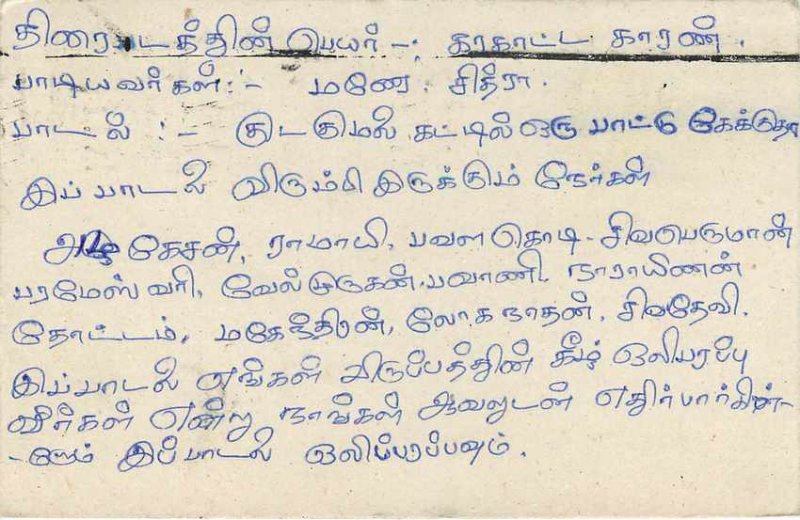 திரைபடத்தின் பெயர் -: கரகாட்ட காரண்.
பாடியவர்கள் :- மனோ. சித்ரா.
பாடல் :- குடகுமலை கட்டில் ஒரு பாட்டு கேக்குதா
இப் பாடலை விரும்பி இருக்கும் நேர்கள்
கேசன், ராமாயி, பவளகொடி - சிவபெருமாள்
பரமேஸ்வரி, வேல்முருகன், பவாணி. நாராயிணன்
தோட்டம், மகேந்திரன், லோகநாதன், சிவதேவி.
இப்பாடலை எங்கள் விருப்பத்தின் கீழ் ஒலிபரப்பு
வீர்கள் என்று நாங்கள் ஆவலுடன் எதிர்பார்கின்-
-றோம் இப்பாடலை ஒலிப்பரப்பவும்.